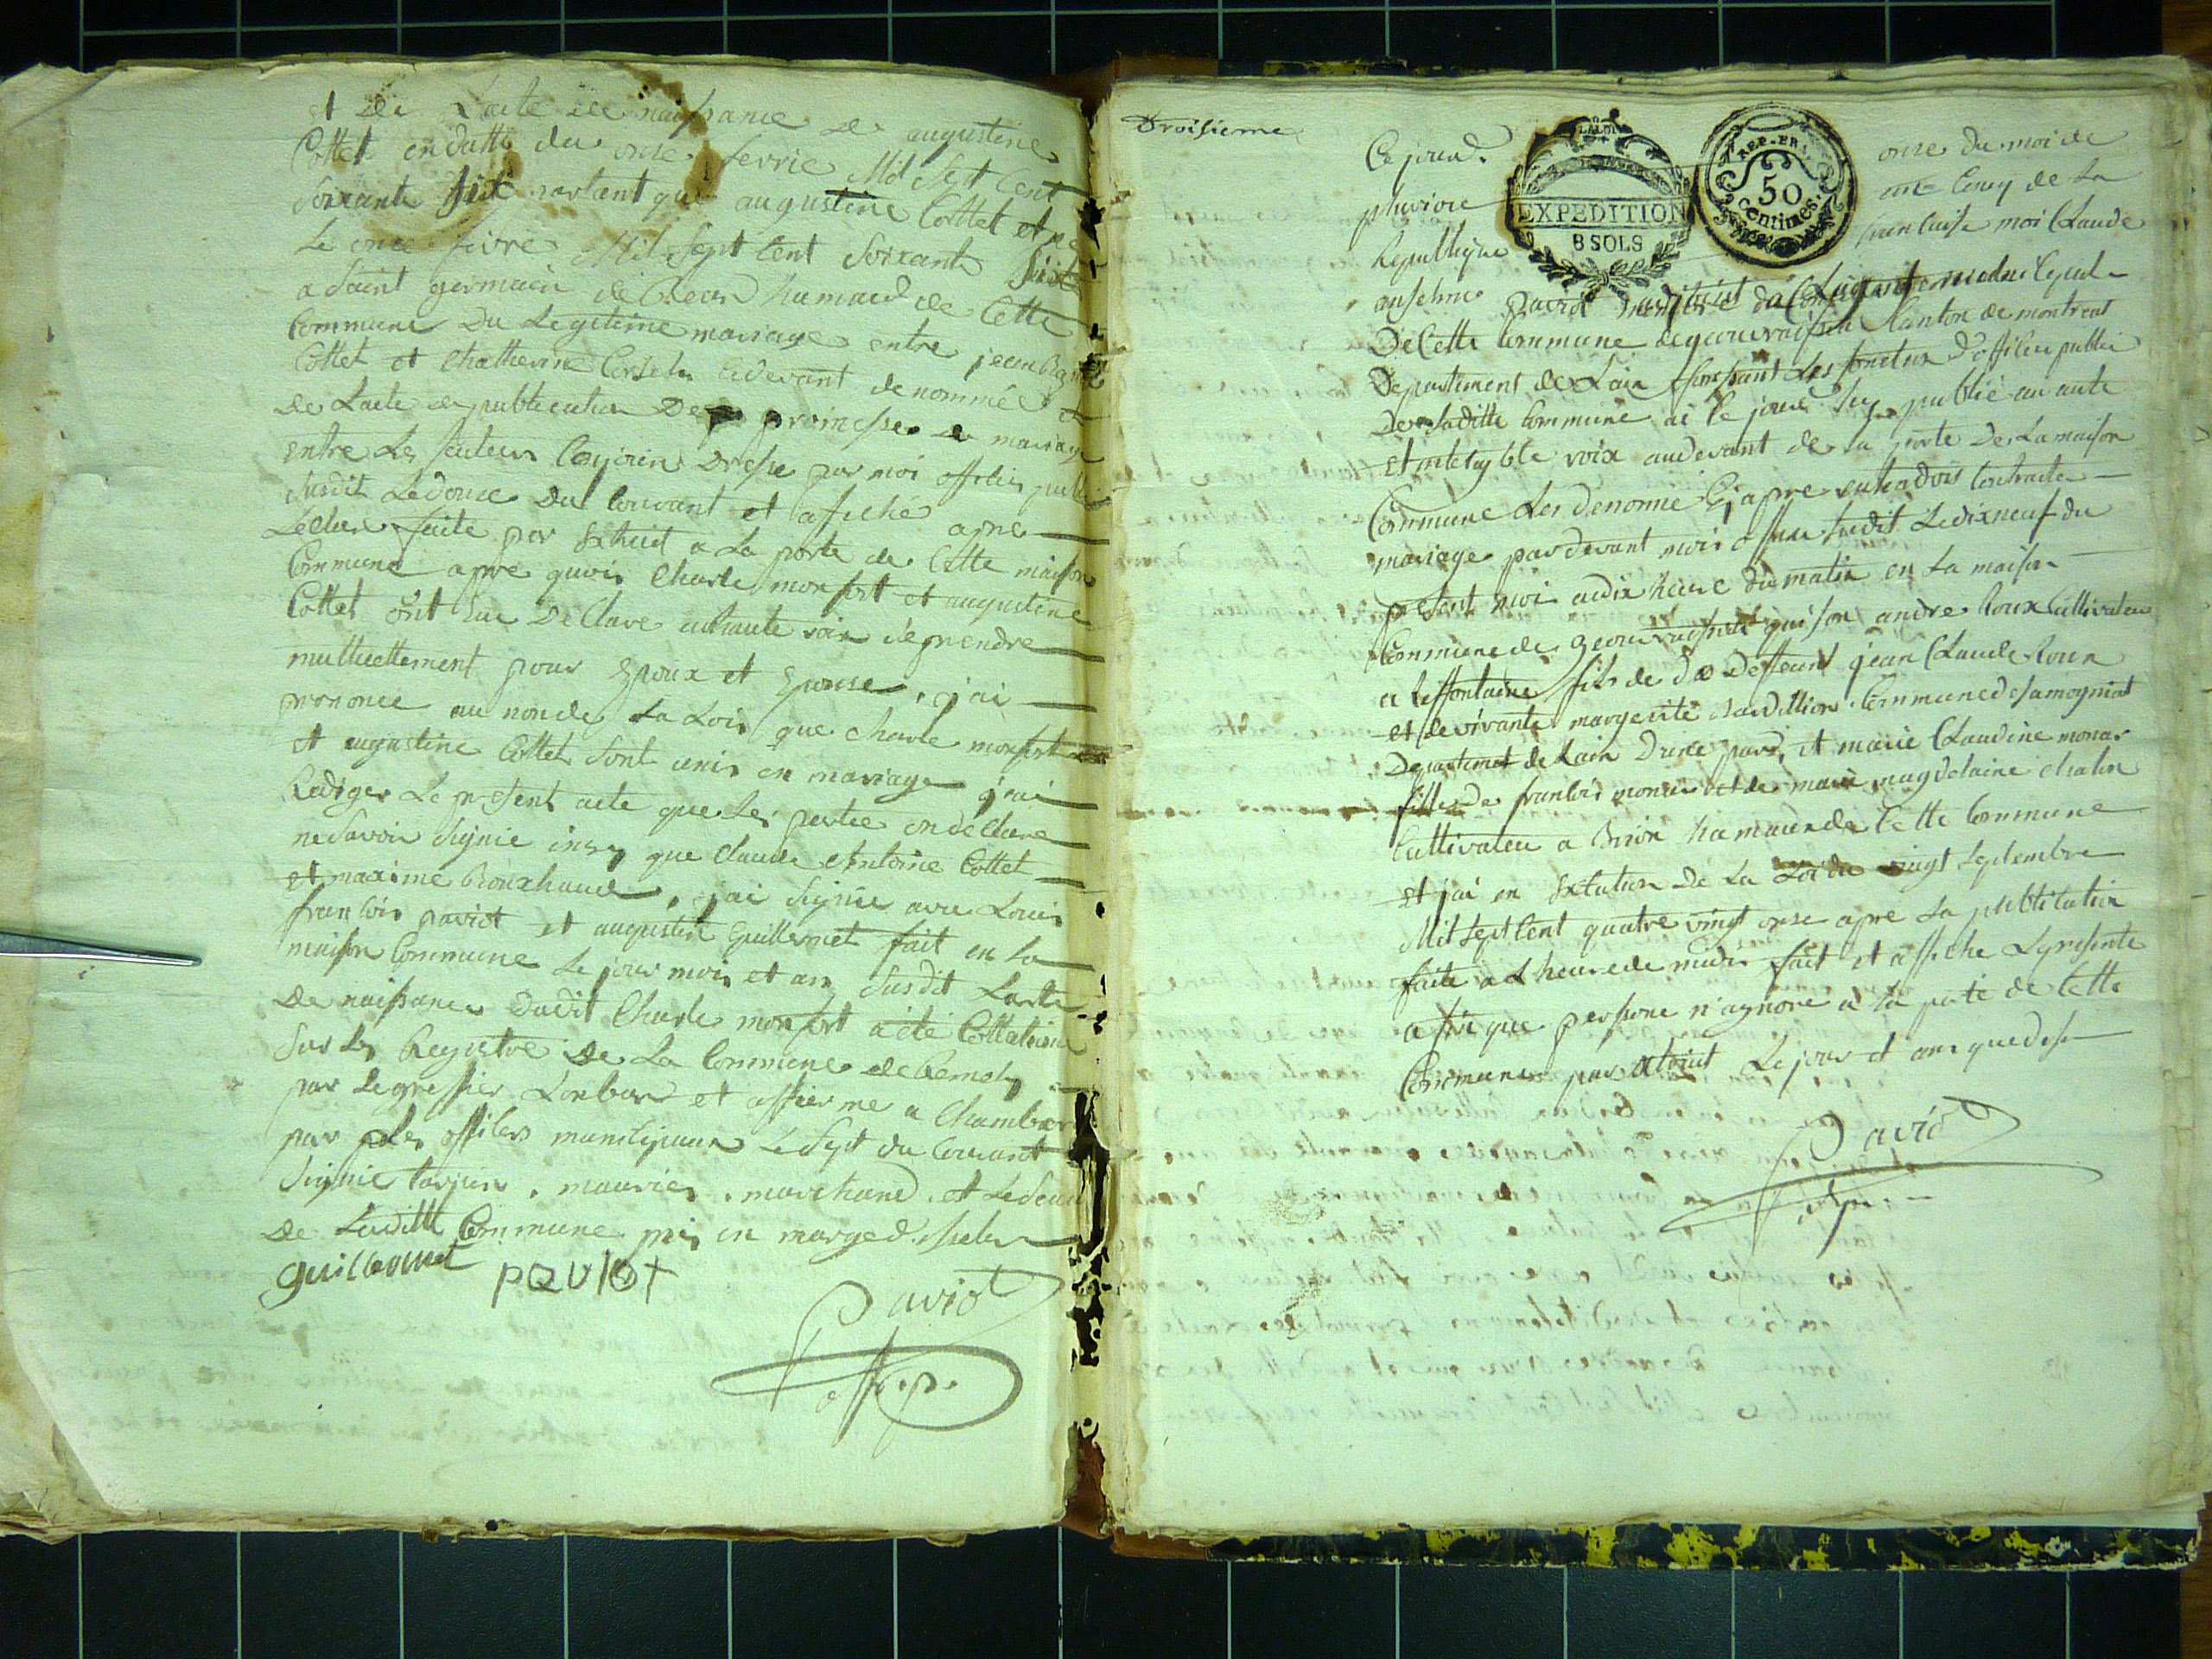 et de L'acte de naissance de augustine
Cottet en datte du onse fevrie Mil Sept Cent
Soixante huit partant que augustine Cottet et
Le once fevre Mil Sept Cent Soixante huit
a Saint germain de hamaud de Cette
Commune Du Legetime mariage entre jean
Cottet et Chatherine cidevant denommé
de Lacte de publication De promesse de mariage
entre Les futeurs Conjoin Dresse par moi officie public
Susdit Le douse Du Courant et afiché apre
Lecture faite par Extrait a La porte de Cette maison
Commune apre quois Charle monfort et augustine
Cottet ont Declare auhaute voix se prendre
muttuettement pour Epoux et Epouse, j'ai
prononce au nonde La Loix que charle monfort
et augustine Cottet Sont unis en mariage j'ai
Rediger Le present acte que Les partie on declare
ne Savoir Signie insy que Claude Antoine Cottet
et maxime Rouxhaud, j'ai Signie avec Louis
francois paviot et augustin Guillermet fait en La
maison Commune Le jour mois et an Susdit Lacte
De naissance Dudit Charle monfort a été Collationé
Sur Les Registre De La Commune de
par Le greffier Lonbard et affierme a
par Les officiers municipaux Le Sept du Courant
Signie tarjun, maurier, marchand, et Le Seau
De Laditte Commune mis en marge
guillermet paviot
Paviot
off. p.
troisieme
Ce jourd onse du moi de
pluviose Cinq de La
Republique francaise moi Claude
anselme Paviot du
De Cette Commune de geouvraissiat Canton de montreal
Departement de Lain Les fonction d'officier public
De Laditte Commune ai Ce jourd publié au aute
et inteligible voix audevant de La porte De La maison
Commune Les denomé Cy apre Contracter
mariage pardevant moi officie Susdit Le dixneuf du
present moi audix heure du matin en La maison
Commune de geouvraissiat qui son andre Roux Cultivateu
a fils de deffeunt jean Claude Roux
et de vivante margerite Commune de Samognat
Departemet de Lain Dune pard, et marie Claudine monar
fille de francois monar et de marie magdelaine
Cultivateu a Brion hamaud de Cette Commune
et j'ai en Exécution De La Loi du vingt Septembre
Mil Sept Cent quatre vingt onse apre La publication
faite a L heure de midi fait et affiche Le presente
afin que persone n'agnore a La porte de Cette
Commune par Extrait Le jour et ans que desu
Paviot
EXPEDITION
8 SOLS
LA LOI
REP. FR.
50
Centimes.